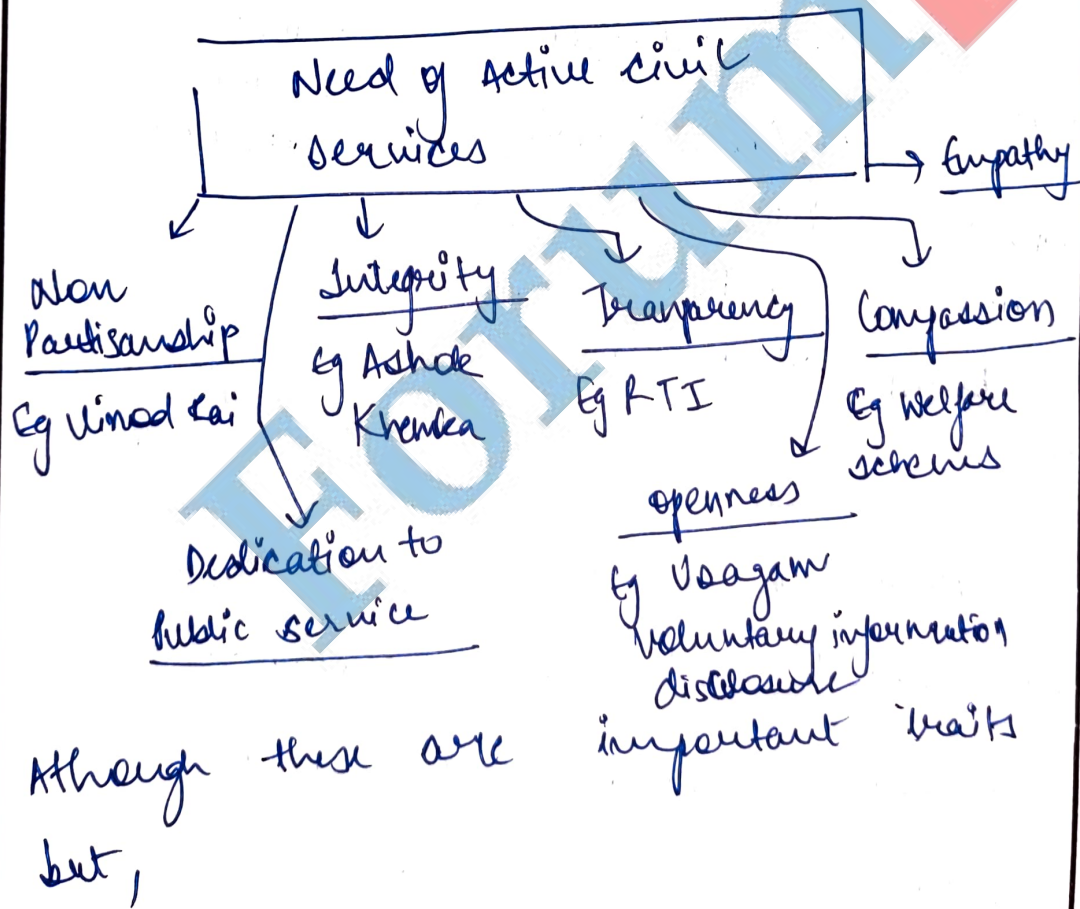 Need of Active Civil
services
Empathy
Non
Partisanship
Eg Vinod Rai
Integrity
Eg Ashok
Khemka
Tranparency
Eg RTI
Compassion
Eg Welfare
schems
Dedication to
Public service
openness
Eg
voluntary information
disclosure
Athough these are important traits
but,
Forum